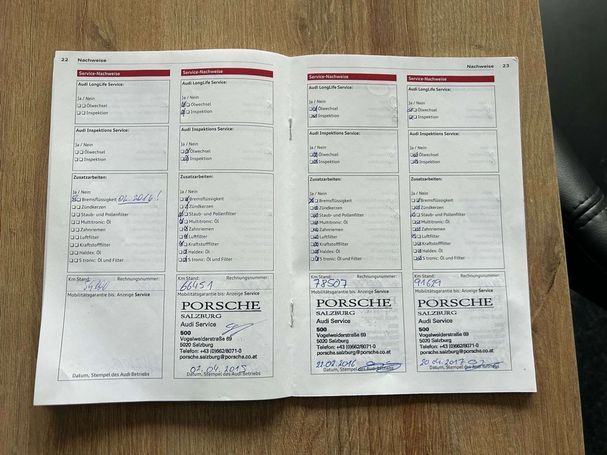 22 Nachweise
Service-Nachweise
Audi LongLife Service:
Ja / Nein
Ölwechsel
Inspektion
Audi Inspektions Service:
Ölwechsel
Inspektion
Zusatzarbeiten:
Ja / Nein
Bremsflüssigkeit
Zündkerzen
Staub- und Pollenfilter
Multitronic: Öl
Zahnriemen
Luftfilter
Kraftstofffilter
Haldex: Öl
S tronic: Öl und Filter
Km Stand: Rechnungsnummer:
Mobilitätsgarantie bis: Anzeige Service
Datum, Stempel des Audi Betriebs
Service-Nachweise
Audi LongLife Service:
Ja / Nein
Ölwechsel
Inspektion
Audi Inspektions Service:
Ölwechsel
Inspektion
Zusatzarbeiten:
Ja / Nein
Bremsflüssigkeit
Zündkerzen
Staub- und Pollenfilter
Multitronic: Öl
Zahnriemen
Luftfilter
Kraftstofffilter
Haldex: Öl
S tronic: Öl und Filter
Km Stand: Rechnungsnummer:
66451
Mobilitätsgarantie bis: Anzeige Service
PORSCHE
SALZBURG
Audi Service
500
Vogelweiderstraße 69
5020 Salzburg
Telefon: +43 (0)662/8071-0
porsche.salzburg@porsche.co.at
02.04.2015
Datum, Stempel des Audi Betriebs
Nachweise 23
Service-Nachweise
Audi LongLife Service:
Ja / Nein
Ölwechsel
Inspektion
Audi Inspektions Service:
Ölwechsel
Inspektion
Zusatzarbeiten:
Ja / Nein
Bremsflüssigkeit
Zündkerzen
Staub- und Pollenfilter
Multitronic: Öl
Zahnriemen
Luftfilter
Kraftstofffilter
Haldex: Öl
S tronic: Öl und Filter
Km Stand: Rechnungsnummer:
78507
Mobilitätsgarantie bis: Anzeige Service
PORSCHE
SALZBURG
Audi Service
500
Vogelweiderstraße 69
5020 Salzburg
Telefon: +43 (0)662/8071-0
porsche.salzburg@porsche.co.at
Datum, Stempel des Audi Betriebs
Service-Nachweise
Audi LongLife Service:
Ja / Nein
Ölwechsel
Inspektion
Audi Inspektions Service:
Ölwechsel
Inspektion
Zusatzarbeiten:
Ja / Nein
Bremsflüssigkeit
Zündkerzen
Staub- und Pollenfilter
Multitronic: Öl
Zahnriemen
Luftfilter
Kraftstofffilter
Haldex: Öl
S tronic: Öl und Filter
Km Stand: Rechnungsnummer:
91629
Mobilitätsgarantie bis: Anzeige Service
PORSCHE
SALZBURG
Audi Service
500
Vogelweiderstraße 69
5020 Salzburg
Telefon: +43 (0)662/8071-0
porsche.salzburg@porsche.co.at
Datum, Stempel des Audi Betriebs